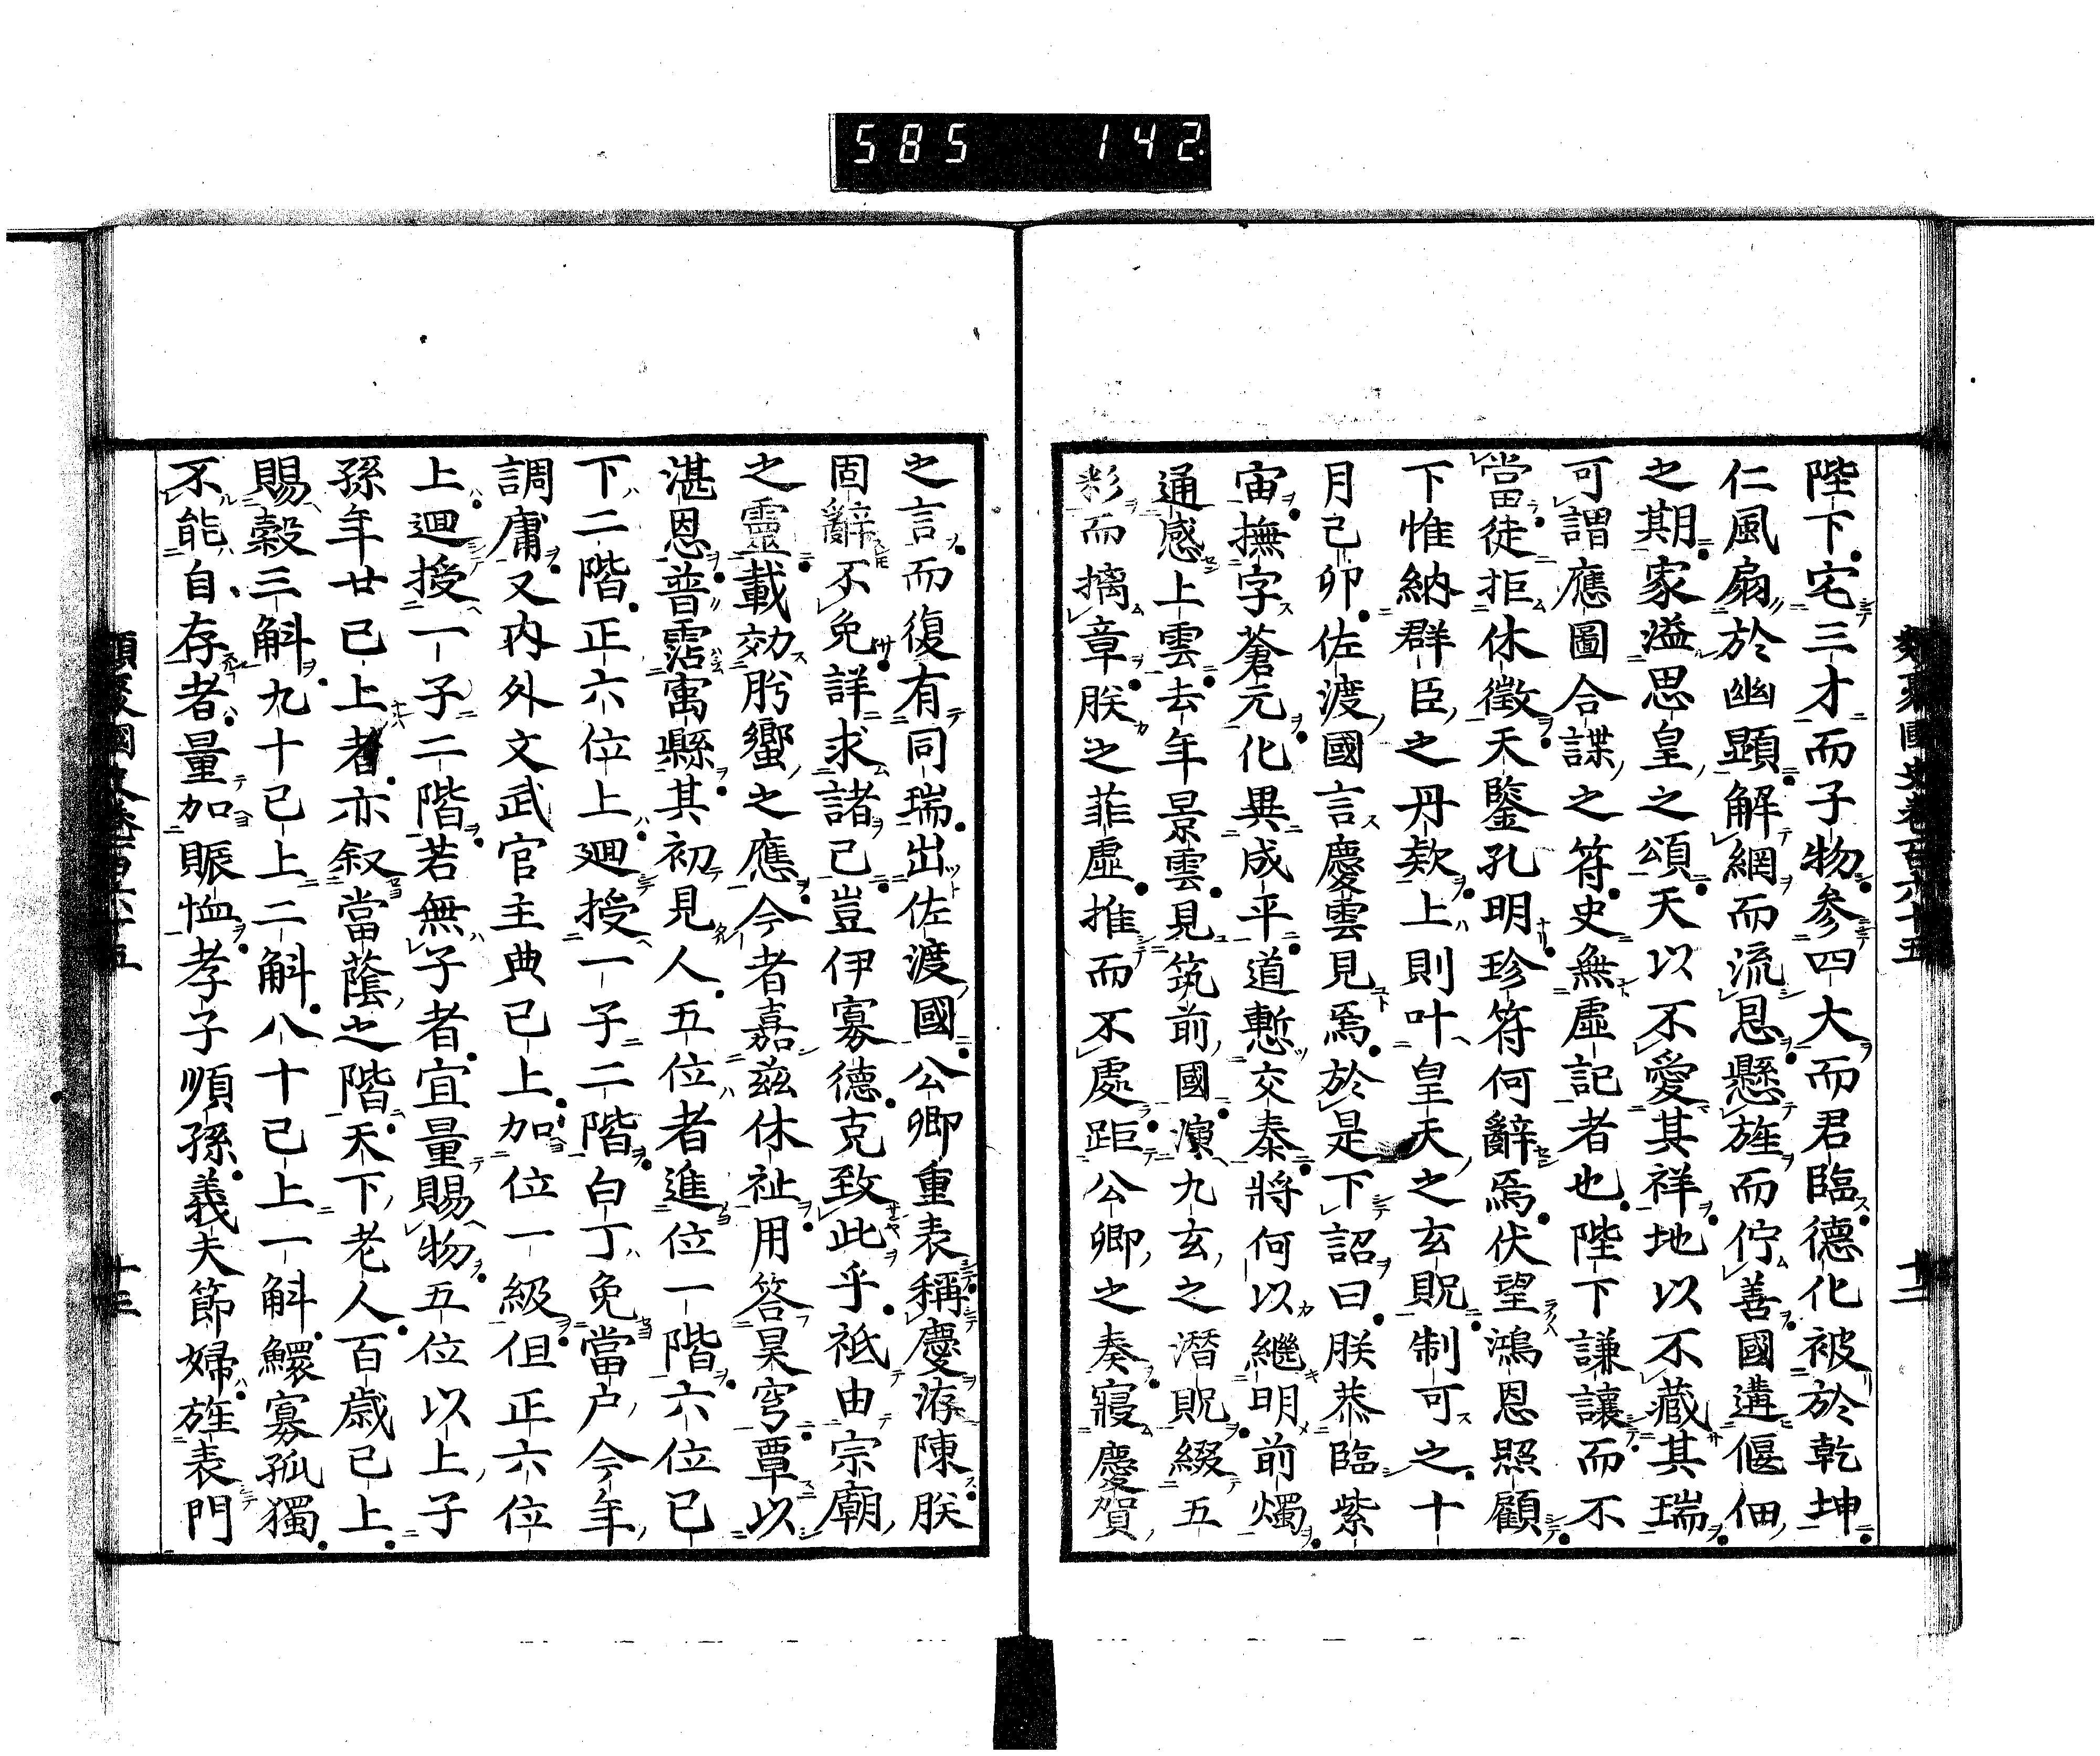 585 142
類聚國史卷百六十五 十二
陛下宅三才而子物参四大而君臨德化被於乾坤
仁風扇於幽顯解網而流恩懸旌而佇善國遘偃伯
之期家溢思皇之頌天以不愛其祥地以不藏其瑞
可謂應圖合諜之符史無虛記者也陛下謙讓而不
當徒拒休徵天鑒孔明珍符何辭焉伏望鴻恩照顧
下惟納群臣之丹欵上則叶皇天之玄貺制可之十
月己卯佐渡國言慶雲見焉於是下詔曰朕恭臨紫
宙撫字蒼元化異成平道慙交泰將何以繼明前燭
通感上雲去年景雲見筑前國演九玄之潛貺綴五
彩而摛章朕之菲虛推而不處距公卿之奏寢慶賀
之言而復有同瑞出佐渡國公卿重表稱慶洊陳朕
固辭不免詳求諸己豈伊寡德克致此乎祗由宗廟
之靈載効肹蠁之應今者嘉茲休祉用答昊穹覃以
湛恩普霑寓縣其初見人五位者進位一階六位已
下二階正六位上廻授一子二階白丁免當户今年
調庸又內外文武官主典已上加位一級但正六位
上廻授一子二階若無子者宜量賜物五位以上子
孫年廿已上者亦叙當蔭之階天下老人百歳已上
賜穀三斛九十已上二斛八十已上一斛鰥寡孤獨
不能自存者量加賑恤孝子順孫義夫節婦旌表門
類聚國史卷百六十五 十三